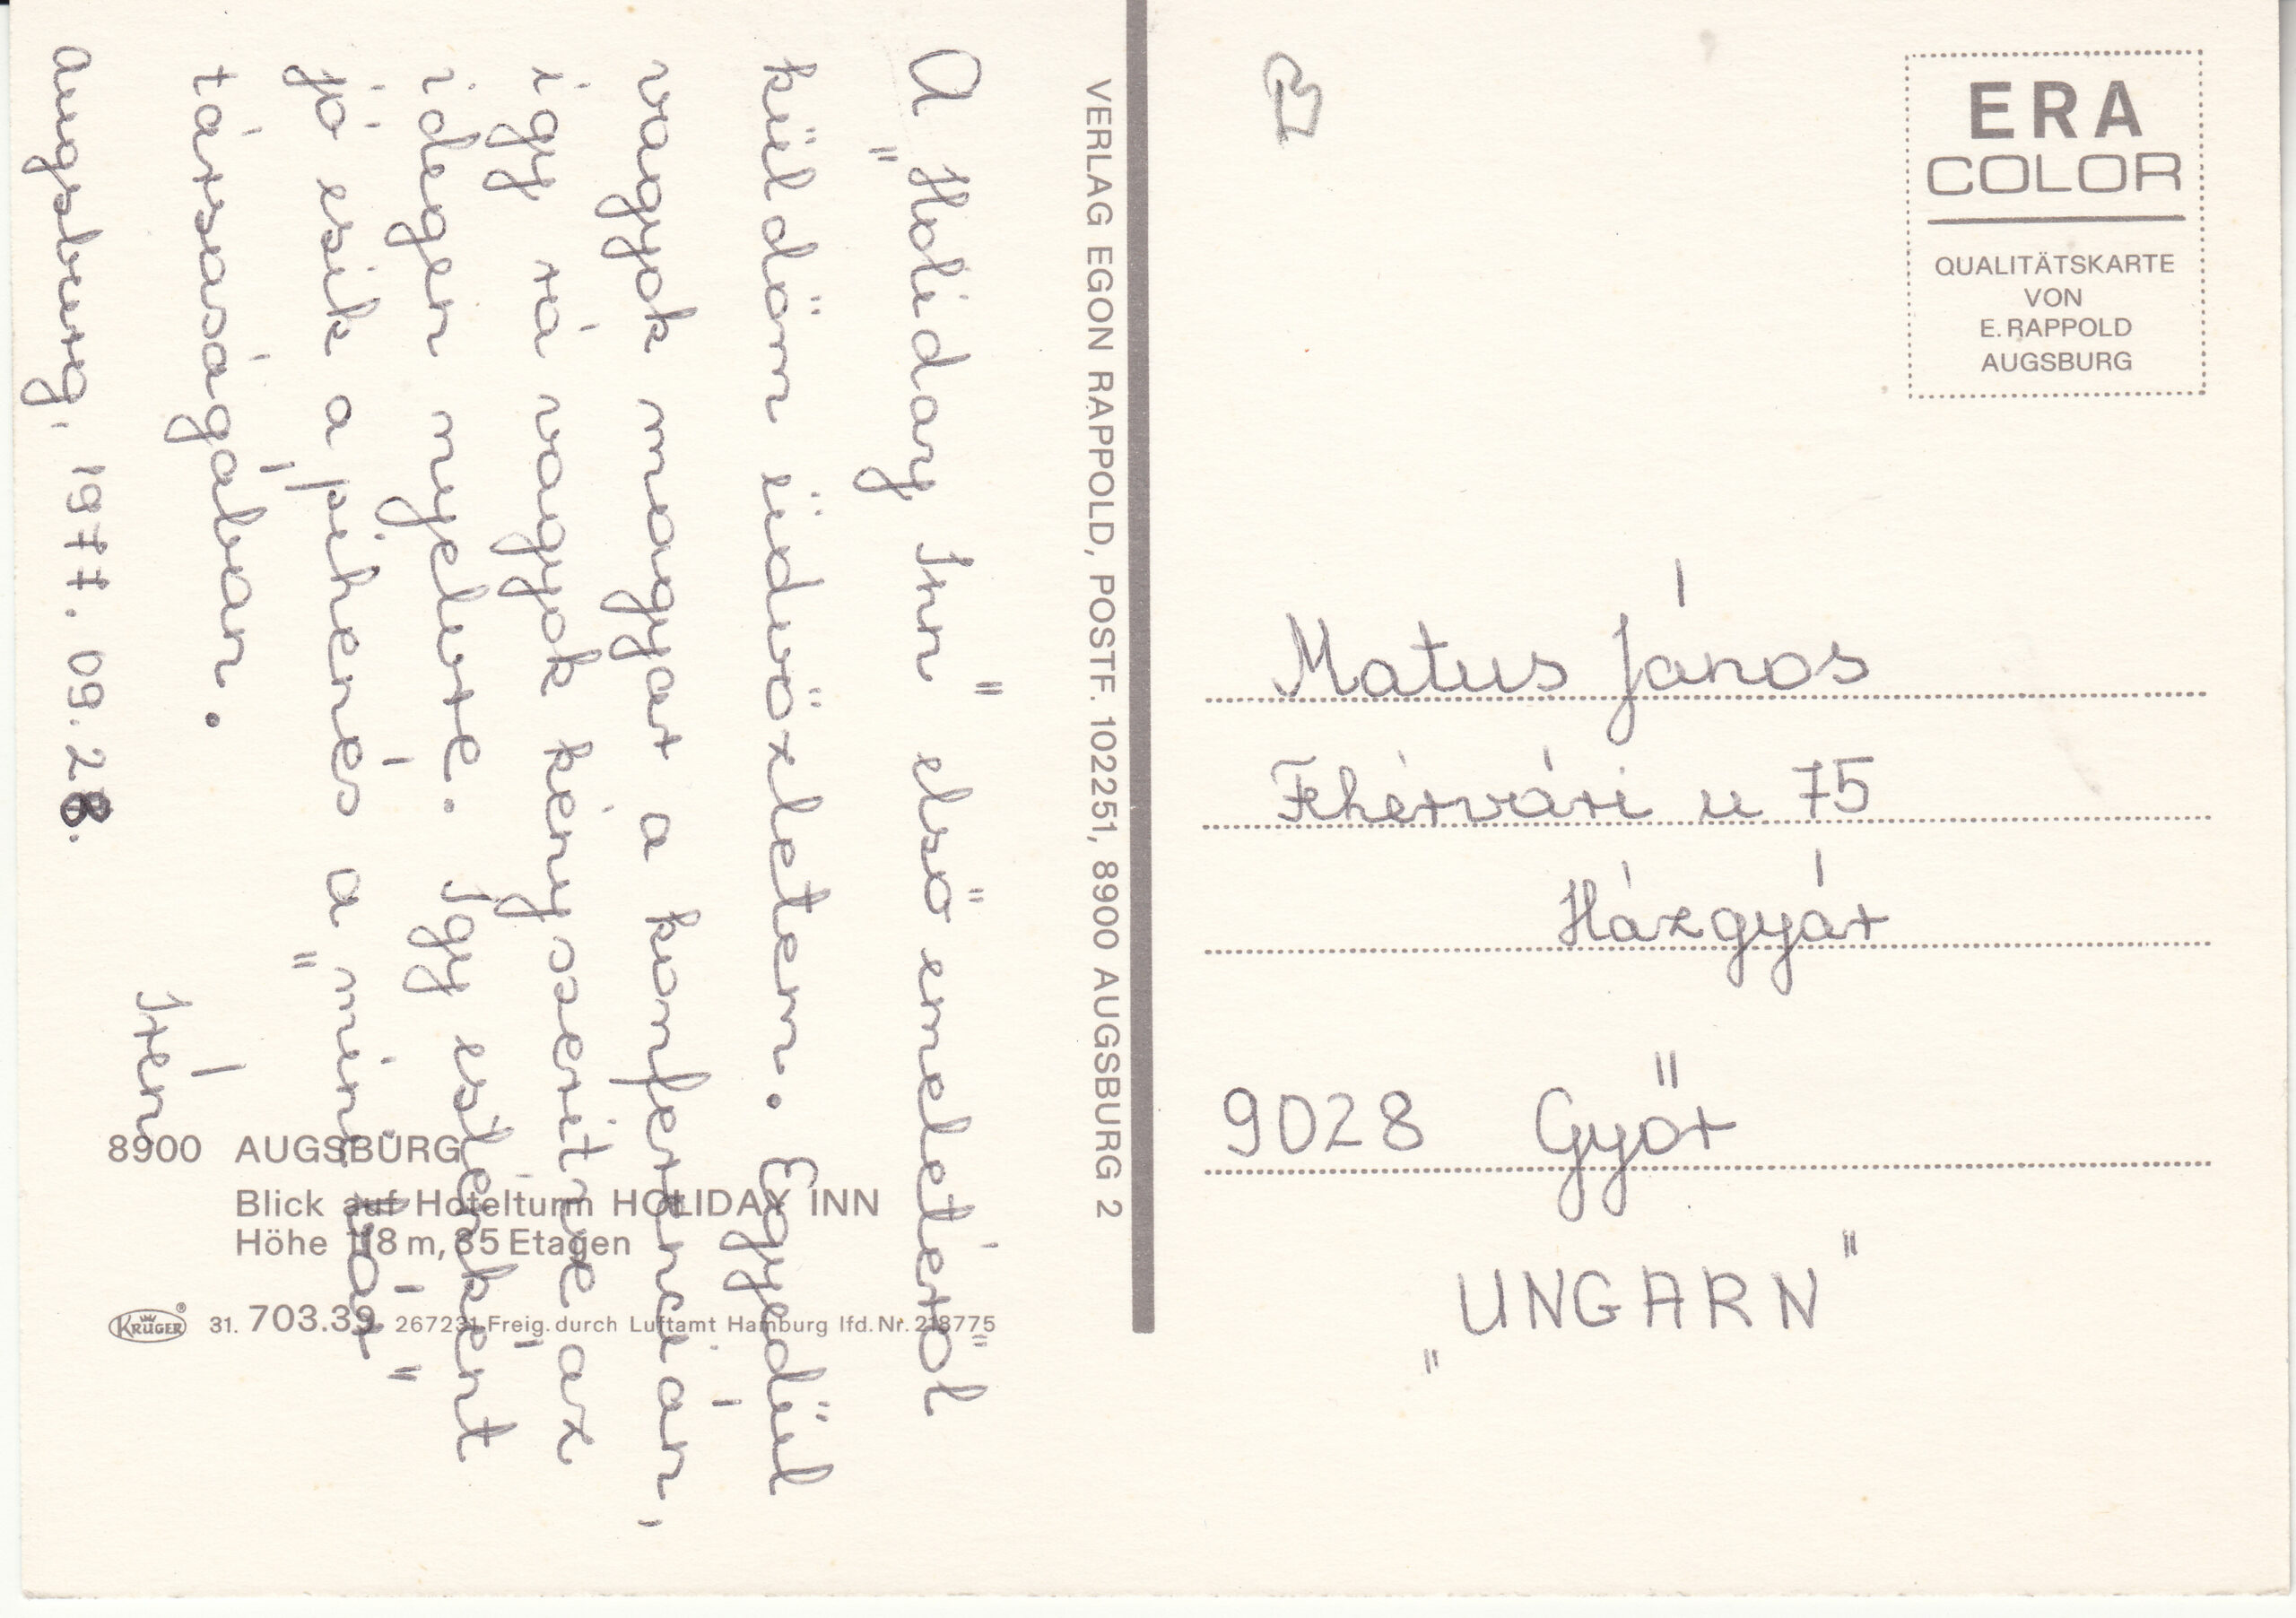 A „Holiday Inn" első emeletéről
küldöm üdvözletem. Egyedül
vagyok magyar a konferencián,
így rá vagyok kényszerítve az
idegen nyelvre. Így esténként
jó esik a pihenés a „mini bár"
társaságában.
Augsburg, 1977. 09. 28.
Irén
8900 AUGSBURG
Blick auf Hotelturm HOLIDAY INN
Höhe 118 m, 35 Etagen
KRÜGER® 31. 703.39 267231 Freig. durch Luftamt Hamburg lfd. Nr. 218775
VERLAG EGON RAPPOLD, POSTF. 102251, 8900 AUGSBURG 2
ERA
COLOR
QUALITÄTSKARTE
VON
E. RAPPOLD
AUGSBURG
Matus János
Fehérvári u 75
Házgyár
9028 Győr
„UNGARN"